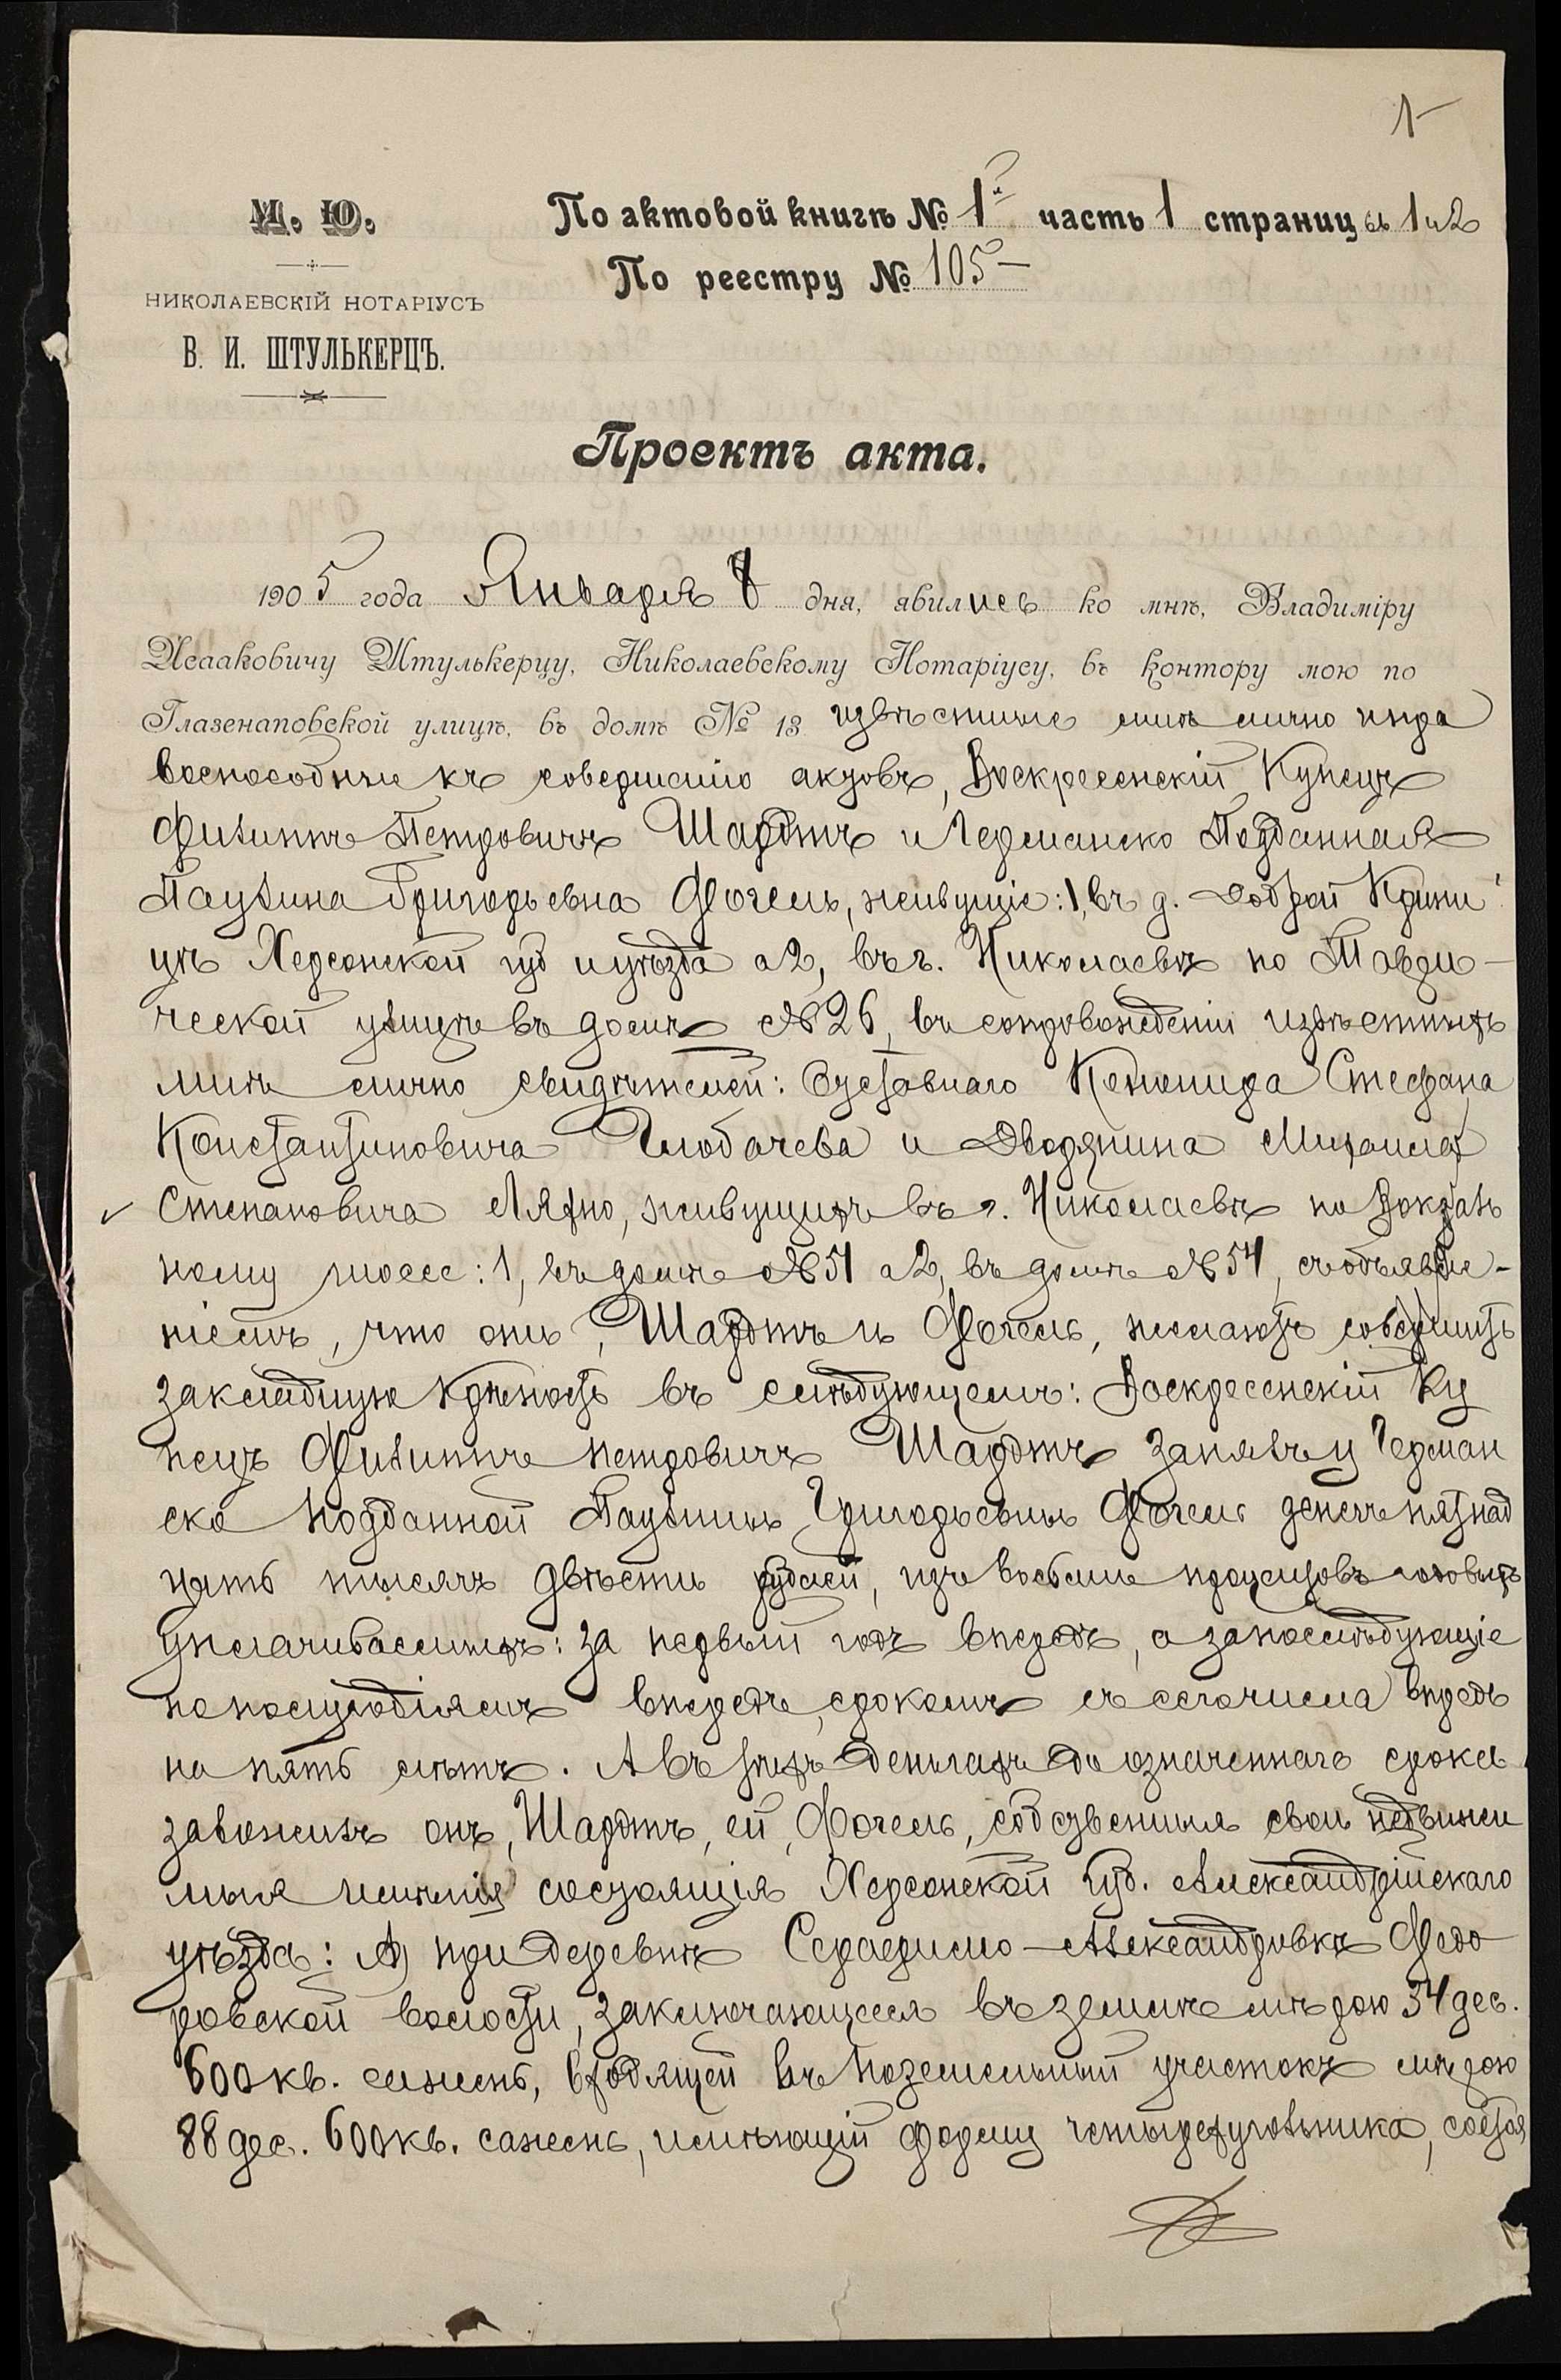 1
М. Ю.
НИКОЛАЕВСКІЙ НОТАРІУСЪ
В. И. ШТУЛЬКЕРЦЪ.
По актовой книгѣ № 1й часть 1 страниц ы 1 и 2
По реестру № 105
Проектъ акта.
1905 года Января 8 дня, явились ко мнѣ, Владиміру
Исааковичу Штулькерцу, Николаевскому Нотаріусу, въ контору мою по
Глазенаповской улицѣ, въ домѣ № 13 извѣстные мнѣ лично и пра
воспособные къ совершенію актовъ, Воскресенскій Купецъ
Филиппъ Петровичъ Шардтъ и Германско Подданная
Паулина Григорьевна Фогель, живущіе: 1, въ д. Доброй Крини
цѣ Херсонской губ и уѣзда а 2, въ г. Николаевѣ по Таври-
ческой улицѣ въ домѣ № 26, въ сопровожденіи извѣстныхъ
мнѣ лично свидѣтелей: Отставного Стефана
Константиновича Глобачева и Дворянина Михаила
Степановича Ляхно, живущихъ въ г. Николаевѣ по Вокзаль
ному шоссе: 1, въ домѣ № 51 а 2, въ домѣ № 54, съ объявле-
ніемъ, что они, Шардтъ и Фогель, желаютъ совершить
закладную крѣпость въ слѣдующемъ: Воскресенскій Ку
пецъ Филиппъ Петровичъ Шардтъ занялъ у Герман
ско подданной Паулины Григорьевны Фогель денегъ пятнад
цать тысячъ двѣсти рублей, изъ восьми процентовъ годовыхъ
уплачиваемыхъ: за первый годъ впередъ, а за послѣдующіе
по полугодіямъ впередъ, срокомъ съ сего числа впредь
на пять лѣтъ. А въ тѣхъ деньгахъ до означеннаго срока
заложилъ онъ, Шардтъ, ей, Фогель, собственныя свои недвижи
мыя имѣнія состоящія Херсонской губ. Александрійскаго
уѣзда: А) при деревнѣ Серафимо-Александровкѣ Федо
ровской волости, заключающееся въ землѣ мѣрою 34 дес.
600 кв. сажень, входящей въ поземельный участокъ мѣрою
88 дес. 600 кв. сажень, имѣющій форму четырехугольника, состоя